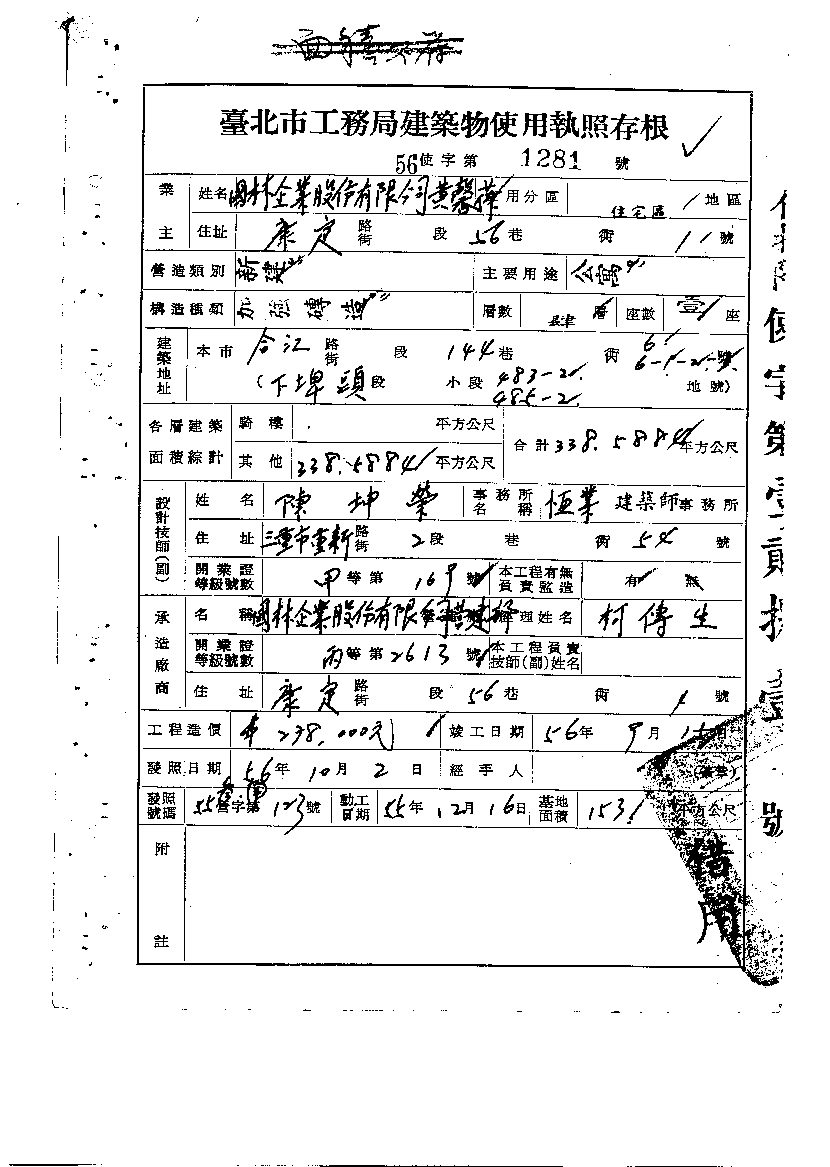 臺北市工務局建築物使用執照存根
56使字第 1281 號
業主 姓名 國林企業股份有限公司黃馨 用分區 住宅區 地區
住址 康定 路街 段 56巷 衖 11號
營造類別 新建 主要用途 公寓
構造種類 加強磚造 層數 肆層 座數 壹座
建築地址 本市 合江 路街 段 144巷 衖 6-1-2號
(下埤頭段 小段 483-2 485-2 地號)
各層建築面積綜計 騎樓 平方公尺 合計338.5884平方公尺
其他 338.5884平方公尺
設計技師(副) 姓名 陳坤榮 事務所名稱 恆業 建築師事務所
住址 三重市重新 路街 2段 巷 衖 54號
開業證等級號數 甲等第 169號 本工程有無負責監造 有 無
承造廠商 名稱 國林企業股份有限公司 經理姓名 柯傳生
開業證等級號數 丙等第2613號 本工程負責技師(副)姓名
住址 康定 路街 段 56巷 衖 號
工程造價 238,000元 竣工日期 56年 9月 15日
發照日期 56年 10月 2日 經手人 (簽章)
發照號碼 55營字第 123號 動工日期 55年 12月 16日 基地面積 153 平方公尺
附註
借閱
使字第壹貳捌壹號